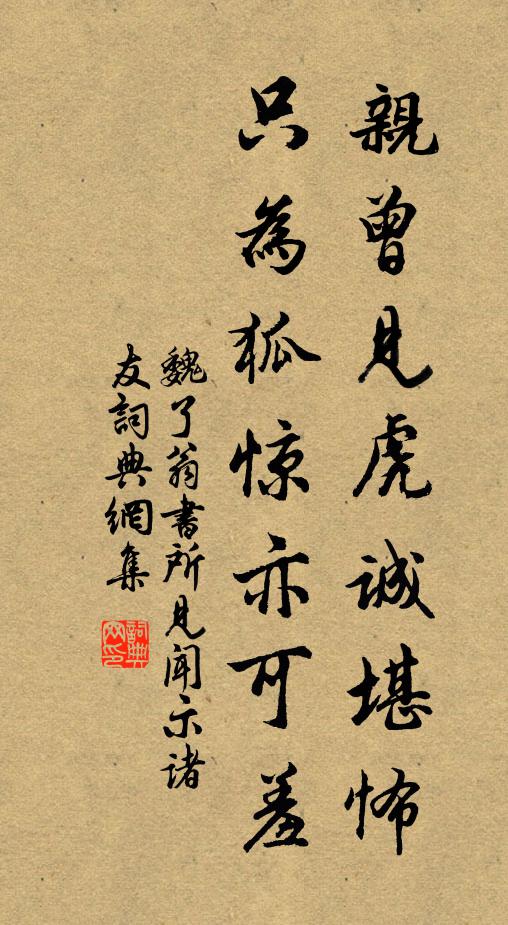 親曾見虎誠堪怖
只為狐惊亦可羞
魏了翁書所見聞示諸
友詞典網集
詞典網印